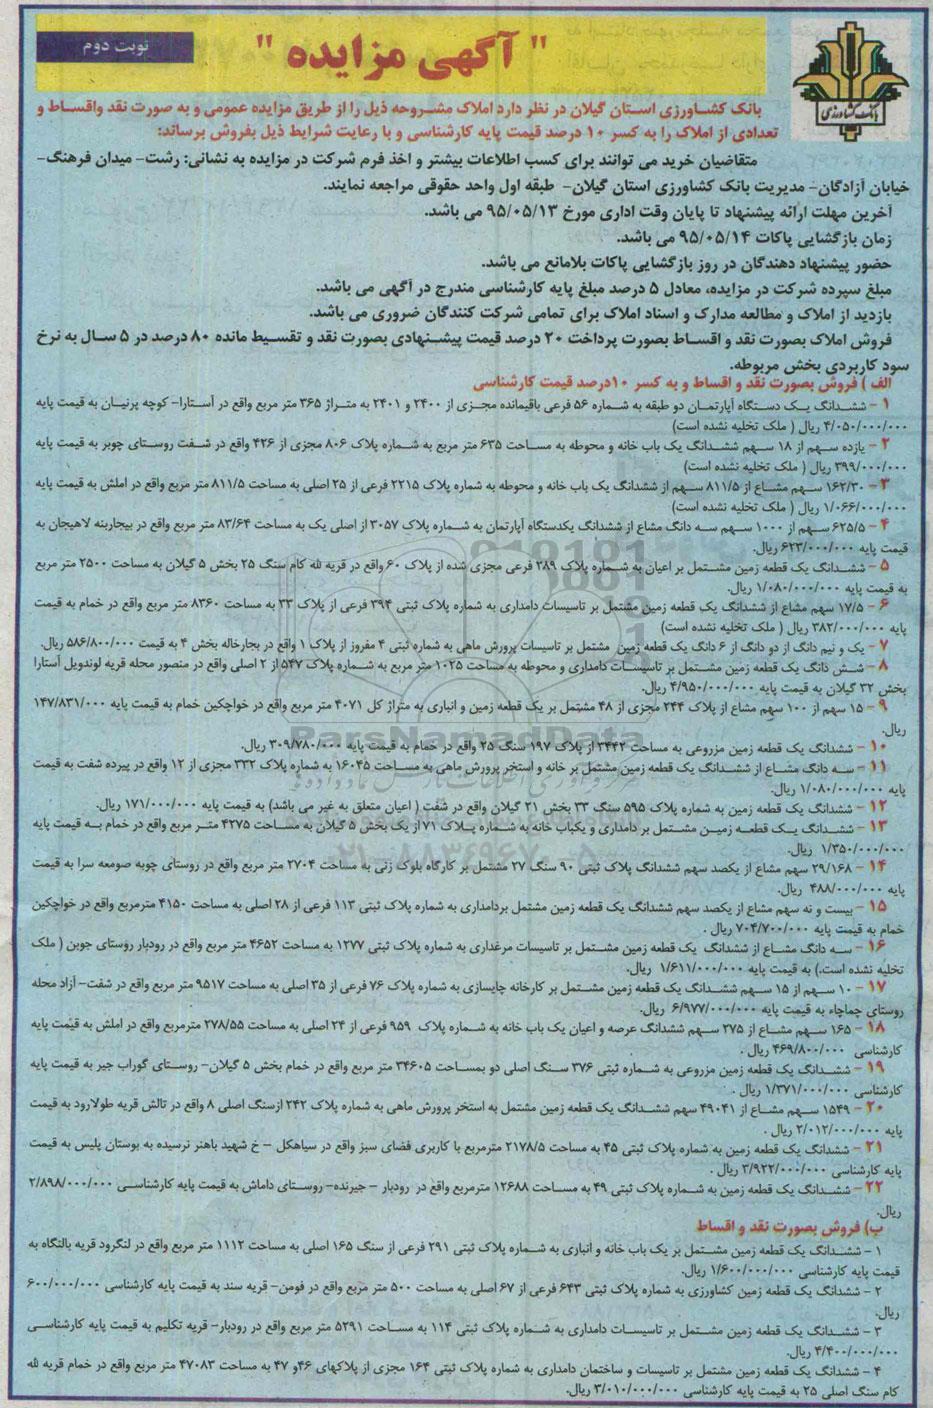 نوبت دوم
" آگهی مزایده "
بانک کشاورزی
بانک کشاورزی استان گیلان در نظر دارد املاک مشروحه ذیل را از طریق مزایده عمومی و به صورت نقد واقساط و
تعدادی از املاک را به کسر ۱۰ درصد قیمت پایه کارشناسی و با رعایت شرایط ذیل بفروش برساند:
متقاضیان خرید می توانند برای کسب اطلاعات بیشتر و اخذ فرم شرکت در مزایده به نشانی: رشت- میدان فرهنگ-
خیابان آزادگان- مدیریت بانک کشاورزی استان گیلان- طبقه اول واحد حقوقی مراجعه نمایند.
آخرین مهلت ارائه پیشنهاد تا پایان وقت اداری مورخ ۹۵/۰۵/۱۳ می باشد.
زمان بازگشایی پاکات ۹۵/۰۵/۱۴ می باشد.
حضور پیشنهاد دهندگان در روز بازگشایی پاکات بلامانع می باشد.
مبلغ سپرده شرکت در مزایده، معادل ۵ درصد مبلغ پایه کارشناسی مندرج در آگهی می باشد.
بازدید از املاک و مطالعه مدارک و اسناد املاک برای تمامی شرکت کنندگان ضروری می باشد.
فروش املاک بصورت نقد و اقساط بصورت پرداخت ۲۰ درصد قیمت پیشنهادی بصورت نقد و تقسیط مانده ۸۰ درصد در ۵ سال به نرخ
سود کاربردی بخش مربوطه.
الف ) فروش بصورت نقد و اقساط و به کسر ۱۰درصد قیمت کارشناسی
۱ - ششدانگ یک دستگاه آپارتمان دو طبقه به شماره ۵۶ فرعی باقیمانده مجزی از ۲۴۰۰ و ۲۴۰۱ به متراژ ۳۶۵ متر مربع واقع در آستارا- کوچه پرنیان به قیمت پایه
۴/۰۵۰/۰۰۰/۰۰۰ ریال ( ملک تخلیه نشده است)
۲ - یازده سهم از ۱۸ سهم ششدانگ یک باب خانه و محوطه به مساحت ۶۳۵ متر مربع به شماره پلاک ۸۰۶ مجزی از ۴۲۶ واقع در شفت روستای چوبر به قیمت پایه
۳۹۹/۰۰۰/۰۰۰ ریال ( ملک تخلیه نشده است)
۳ - ۱۶۲/۳۰ سهم مشاع از ۸۱۱/۵ سهم از ششدانگ یک باب خانه و محوطه به شماره پلاک ۲۲۱۵ فرعی از ۲۵ اصلی به مساحت ۸۱۱/۵ متر مربع واقع در املش به قیمت پایه
۱/۰۶۶/۰۰۰/۰۰۰ ریال ( ملک تخلیه نشده است)
۴ - ۶۲۵/۵ سهم از ۱۰۰۰ سهم سه دانگ مشاع از ششدانگ یکدستگاه آپارتمان به شماره پلاک ۳۰۵۷ از اصلی یک به مساحت ۸۳/۶۴ متر مربع واقع در بیجاربنه لاهیجان به
قیمت پایه ۶۲۳/۰۰۰/۰۰۰ ریال.
۵ - ششدانگ یک قطعه زمین مشتمل بر اعیان به شماره پلاک ۳۸۹ فرعی مجزی شده از پلاک ۶۰ واقع در قریه لله کام سنگ ۲۵ بخش ۵ گیلان به مساحت ۲۵۰۰ متر مربع
به قیمت پایه ۱/۰۸۰/۰۰۰/۰۰۰ ریال.
۶ - ۱۷/۵ سهم مشاع از ششدانگ یک قطعه زمین مشتمل بر تاسیسات دامداری به شماره پلاک ثبتی ۳۹۴ فرعی از پلاک ۳۳ به مساحت ۸۳۶۰ متر مربع واقع در خمام به قیمت
پایه ۳۸۲/۰۰۰/۰۰۰ ریال ( ملک تخلیه نشده است)
۷ - یک و نیم دانگ از دو دانگ از ۶ دانگ یک قطعه زمین مشتمل بر تاسیسات پرورش ماهی به شماره ثبتی ۴ مفروز از پلاک ۱ واقع در بجارخاله بخش ۴ به قیمت ۵۸۶/۸۰۰/۰۰۰ ریال.
۸ - شش دانگ یک قطعه زمین مشتمل بر تاسیسات دامداری و محوطه به مساحت ۱۰۲۵ متر مربع به شماره پلاک ۵۴۷ از ۲ اصلی واقع در منصور محله قریه لوندویل آستارا
بخش ۳۲ گیلان به قیمت پایه ۴/۹۵۰/۰۰۰/۰۰۰ ریال.
۹ - ۱۵ سهم از ۱۰۰ سهم مشاع از پلاک ۲۴۴ مجزی از ۴۸ مشتمل بر یک قطعه زمین و انباری به متراژ کل ۴۰۷۱ متر مربع واقع در خواچکین خمام به قیمت پایه ۱۴۷/۸۳۱/۰۰۰
ریال.
۱۰ - ششدانگ یک قطعه زمین مزروعی به مساحت ۳۴۴۲ از پلاک ۱۹۷ سنگ ۲۵ واقع در خمام به قیمت پایه ۳۰۹/۷۸۰/۰۰۰ ریال.
۱۱ - سه دانگ مشاع از ششدانگ یک قطعه زمین مشتمل بر خانه و استخر پرورش ماهی به مساحت ۱۶۰۴۵ به شماره پلاک ۳۳۲ مجزی از ۱۲ واقع در پیرده شفت به قیمت
پایه ۱/۰۸۰/۰۰۰/۰۰۰ ریال.
۱۲ - ششدانگ یک قطعه زمین به شماره پلاک ۵۹۵ سنگ ۳۳ بخش ۲۱ گیلان واقع در شفت ( اعیان متعلق به غیر می باشد) به قیمت پایه ۱۷۱/۰۰۰/۰۰۰ ریال.
۱۳ - ششدانگ یک قطعه زمین مشتمل بر دامداری و یکباب خانه به شماره پلاک ۷۱ از یک بخش ۵ گیلان به مساحت ۴۲۷۵ متر مربع واقع در خمام به قیمت پایه
۱/۳۵۰/۰۰۰/۰۰۰ ریال.
۱۴ - ۲۹/۱۶۸ سهم مشاع از یکصد سهم ششدانگ پلاک ثبتی ۹۰ سنگ ۲۷ مشتمل بر کارگاه بلوک زنی به مساحت ۲۷۰۴ متر مربع واقع در روستای چوبه صومعه سرا به قیمت
پایه ۴۸۸/۰۰۰/۰۰۰ ریال.
۱۵ - بیست و نه سهم مشاع از یکصد سهم ششدانگ یک قطعه زمین مشتمل بردامداری به شماره پلاک ثبتی ۱۱۳ فرعی از ۲۸ اصلی به مساحت ۴۱۵۰ مترمربع واقع در خواچکین
خمام به قیمت پایه ۷۰۴/۷۰۰/۰۰۰ ریال .
۱۶ - سه دانگ مشاع از ششدانگ یک قطعه زمین مشتمل بر تاسیسات مرغداری به شماره پلاک ثبتی ۱۲۷۷ به مساحت ۴۶۵۲ متر مربع واقع در رودبار روستای جوبن ( ملک
تخلیه نشده است.) به قیمت پایه ۱/۶۱۱/۰۰۰/۰۰۰ ریال.
۱۷ - ۱۰ سهم از ۱۵ سهم ششدانگ یک قطعه زمین مشتمل بر کارخانه چایسازی به شماره پلاک ۷۶ فرعی از ۳۵ اصلی به مساحت ۹۵۱۷ متر مربع واقع در شفت- آزاد محله
روستای چماچاه به قیمت پایه ۶/۹۷۷/۰۰۰/۰۰۰ ریال.
۱۸ - ۱۶۵ سهم مشاع از ۲۷۵ سهم ششدانگ عرصه و اعیان یک باب خانه به شماره پلاک ۹۵۹ فرعی از ۲۴ اصلی به مساحت ۲۷۸/۵۵ مترمربع واقع در املش به قیمت پایه
کارشناسی ۴۶۹/۸۰۰/۰۰۰ ریال .
۱۹ - ششدانگ یک قطعه زمین مزروعی به شماره ثبتی ۳۷۶ سنگ اصلی دو بمساحت ۳۴۶۰۵ متر مربع واقع در خمام بخش ۵ گیلان- روستای گوراب جیر به قیمت پایه
کارشناسی ۱/۳۷۱/۰۰۰/۰۰۰ ریال .
۲۰ - ۱۵۴۹ سهم مشاع از ۴۹۰۴۱ سهم ششدانگ یک قطعه زمین مشتمل به استخر پرورش ماهی به شماره پلاک ۲۴۲ ازسنگ اصلی ۸ واقع در تالش قریه طولارود به قیمت
پایه ۲/۰۱۲/۰۰۰/۰۰۰ ریال .
۲۱ - ششدانگ یک قطعه زمین به شماره پلاک ثبتی ۴۵ به مساحت ۲۱۷۸/۵ مترمربع با کاربری فضای سبز واقع در سیاهکل - خ شهید باهنر نرسیده به بوستان پلیس به قیمت
پایه کارشناسی ۳/۹۲۲/۰۰۰/۰۰۰ ریال .
۲۲ - ششدانگ یک قطعه زمین به شماره پلاک ثبتی ۴۹ به مساحت ۱۲۶۸۸ مترمربع واقع در رودبار - جیرنده- روستای داماش به قیمت پایه کارشناسی ۲/۸۹۸/۰۰۰/۰۰۰
ریال.
ب) فروش بصورت نقد و اقساط
۱ - ششدانگ یک قطعه زمین مشتمل بر یک باب خانه و انباری به شماره پلاک ثبتی ۲۹۱ فرعی از سنگ ۱۶۵ اصلی به مساحت ۱۱۱۲ متر مربع واقع در لنگرود قریه بالنگاه به
قیمت پایه کارشناسی ۱/۶۰۰/۰۰۰/۰۰۰ ریال.
۲ - ششدانگ یک قطعه زمین کشاورزی به شماره پلاک ثبتی ۶۴۳ فرعی از ۶۷ اصلی به مساحت ۵۰۰ متر مربع واقع در فومن- قریه سند به قیمت پایه کارشناسی ۶۰۰/۰۰۰/۰۰۰
ریال.
۳ - ششدانگ یک قطعه زمین مشتمل بر تاسیسات دامداری به شماره پلاک ثبتی ۱۱۴ به مساحت ۵۲۹۱ متر مربع واقع در رودبار- قریه تکلیم به قیمت پایه کارشناسی
۴/۴۰۰/۰۰۰/۰۰۰ ریال.
۴ - ششدانگ یک قطعه زمین مشتمل بر تاسیسات و ساختمان دامداری به شماره پلاک ثبتی ۱۶۴ مجزی از پلاکهای ۴۶و ۴۷ به مساحت ۴۷۰۸۳ متر مربع واقع در خمام قریه لله
کام سنگ اصلی ۲۵ به قیمت پایه کارشناسی ۳/۰۱۰/۰۰۰/۰۰۰ ریال.
ParsNamadData